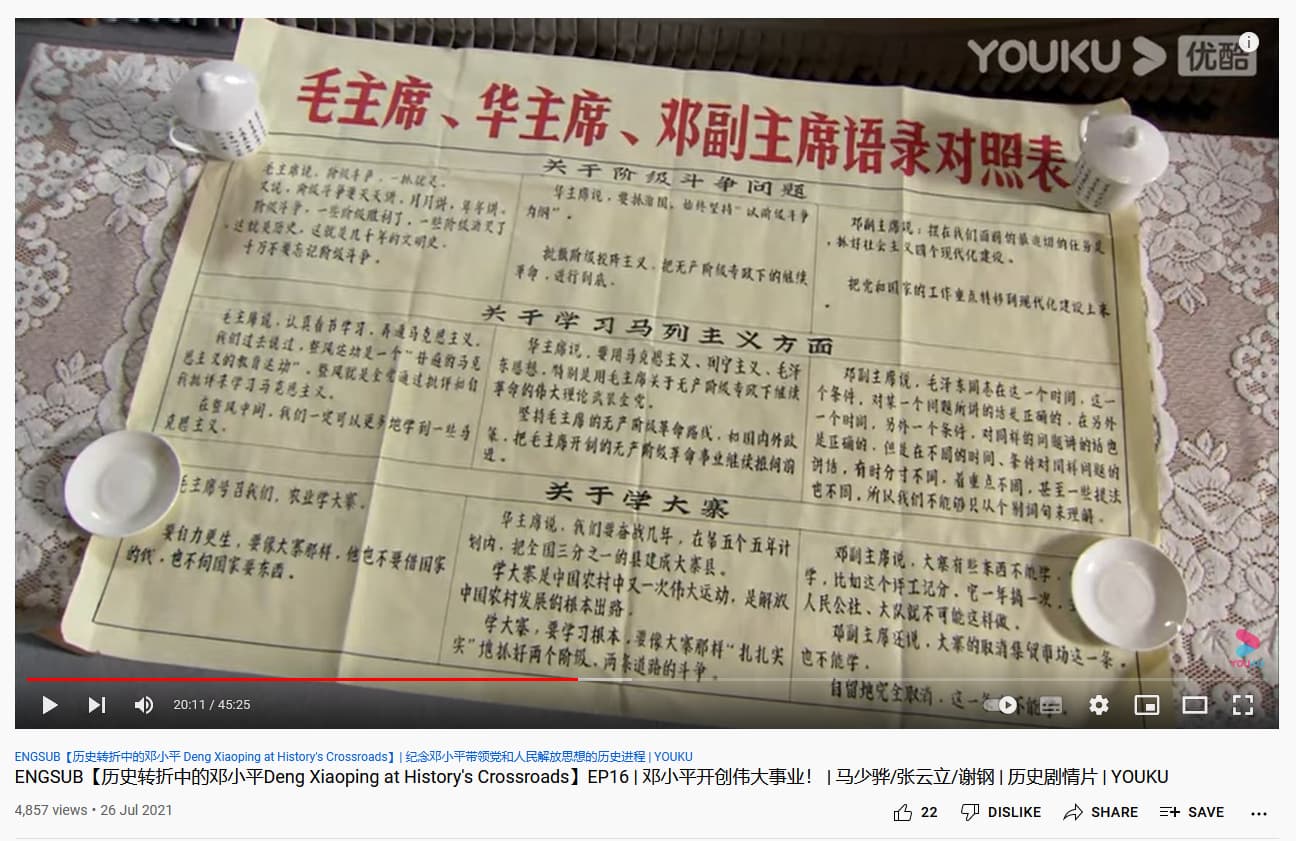 YOUKU 优酷
毛主席、华主席、邓副主席语录对照表
关于阶级斗争问题
毛主席说，阶级斗争，一抓就灵。
又说，阶级斗争要天天讲，月月讲，年年讲。
阶级斗争，一些阶级胜利了，一些阶级消灭了
，这就是历史，这就是几千年的文明史。
千万不要忘记阶级斗争。
华主席说，要抓纲治国，始终坚持“以阶级斗争
为纲”。
批臭阶级投降主义，把无产阶级专政下的继续
革命，进行到底。
邓副主席说：摆在我们面前的最迫切的任务是
，抓好社会主义四个现代化建设。
把党和国家的工作重点转移到现代化建设上来
。
关于学习马列主义方面
毛主席说，认真看书学习，弄通马克思主义。
我们过去说过，整风运动是一个“普遍的马克
思主义的教育运动”。整风就是全党通过批评和自
我批评来学习马克思主义。
在整风中间，我们一定可以更多地学到一些马
克思主义。
华主席说，要用马克思主义、列宁主义、毛泽
东思想，特别是用毛主席关于无产阶级专政下继续
革命的伟大理论武装全党。
坚持毛主席的无产阶级革命路线，和国内外政
策，把毛主席开制的无产阶级革命事业继续推向前
进。
邓副主席说，毛泽东同志在这一个时间，这一
个条件，对某一个问题所讲的话是正确的，在另外
一个时间，另外一个条件，对同样的问题讲的话也
是正确的，但是在不同的时间、条件对同样问题的
讲话，有时分寸不同，着重点不同，甚至一些提法
也不同，所以我们不能够只从个别词句来理解。
关于学大寨
毛主席号召我们，农业学大寨。
要自力更生，要像大寨那样，他也不要借国家
的代，也不向国家要东西。
华主席说，我们要奋战几年，在第五个五年计
划内，把全国三分之一的县建成大寨县。
学大寨是中国农村中又一次伟大运动，是解放
中国农村发展的根本出路。
学大寨，要学习根本，要像大寨那样“扎扎实
实”地抓好两个阶级、两条道路的斗争。
邓副主席说，大寨有些东西不能学，
学，比如这个评工记分，它一年搞一次，
人民公社、大队就不可能这样做。
邓副主席还说，大寨的取消集贸市场这一条，
也不能学。
自留地完全取消，这一条不能学。
YOUKU
20:11 / 45:25
ENGSUB【历史转折中的邓小平 Deng Xiaoping at History's Crossroads】| 纪念邓小平带领党和人民解放思想的历史进程 | YOUKU
ENGSUB【历史转折中的邓小平Deng Xiaoping at History's Crossroads】EP16 | 邓小平开创伟大事业！ | 马少骅/张云立/谢钢 | 历史剧情片 | YOUKU
4,857 views • 26 Jul 2021
22 DISLIKE SHARE SAVE ...